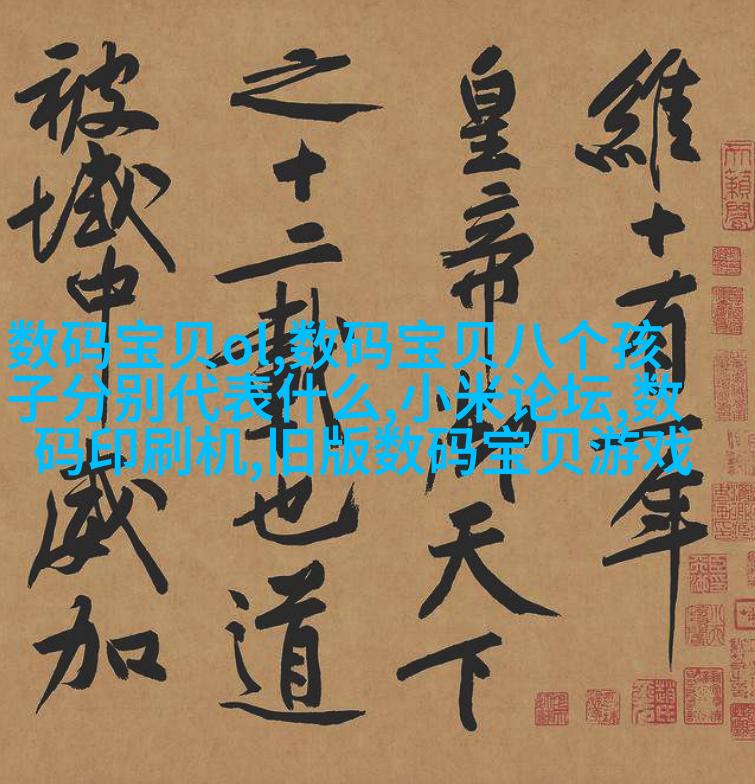 維十有一年
皇帝御天下
之十二載也道
被域中威加
数码宝贝ol,数码宝贝八个孩
子分别代表什么,小米论坛,数
码印刷机,旧版数码宝贝游戏